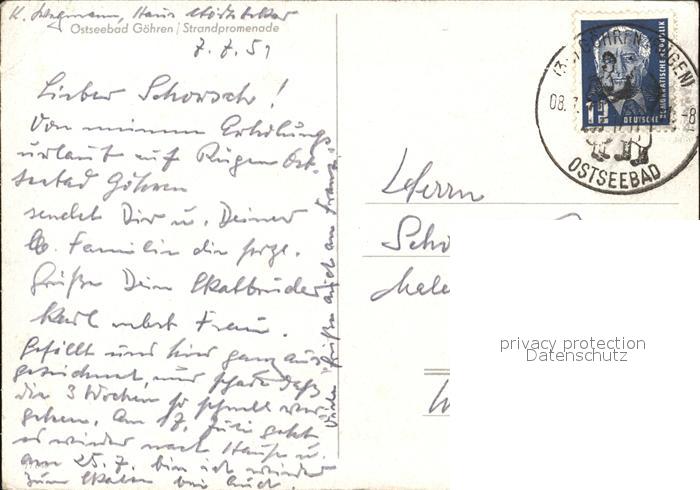 K. Wegmann, Haus
Ostseebad Göhren / Strandpromenade
7. 7. 51
Lieber Schorsch!
Von meinem Erholungs-
urlaub auf Rügen Ost-
seebad Göhren
sendet Dir u. Deiner
lb. Familie die herzl.
Grüße Dein Skatbruder
Karl nebst Frau.
Gefällt uns hier ganz aus-
gezeichnet, nur schade daß
die 3 Wochen so schnell ver-
gehen. Am 17. Juli geht
es wieder nach Hause u.
am 25.7. bin ich wieder
zum Skaten bei Euch.
Viele Grüße auch an Franz
Herrn
Scho
Male
W
GÖHREN (RÜGEN)
08.7.
-8
OSTSEEBAD
15
DEUTSCHE
DEMOKRATISCHE REPUBLIK
privacy protection
Datenschutz